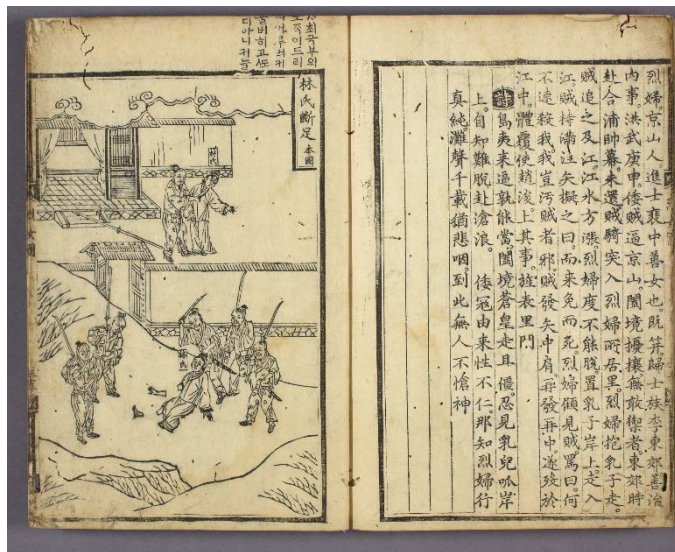 烈婦。京山人。進士裵中善女也。既笄。歸士族李東郊。善治
內事。洪武庚申。倭賊逼京山。闔境擾攘。無敢禦者。東郊時
赴合浦帥幕。未還。賊騎突入烈婦所居里。烈婦抱乳子走。
賊追之及江。江水方漲。烈婦度不能脫。置乳子岸上。走入
江。賊持滿注矢擬之曰。而來免而死。烈婦顧見賊。罵曰。何
不速殺我。我豈汚賊者邪。賊發矢中肩。再發再中。遂歿於
江中。體覆使趙浚上其事。旌表里門
詩 島夷來逼孰能當。闔境蒼皇走且僵。忍見乳兒呱岸
上。自知難脫赴滄浪。 倭寇由來性不仁。那知烈婦行
真純。灘聲千載猶悲咽。到此無人不愴神
최극부의
도ᄌᆞᆨ이드리
버히고ᄯᅩ
디아니커늘
林氏斷足 本國
林氏
林氏